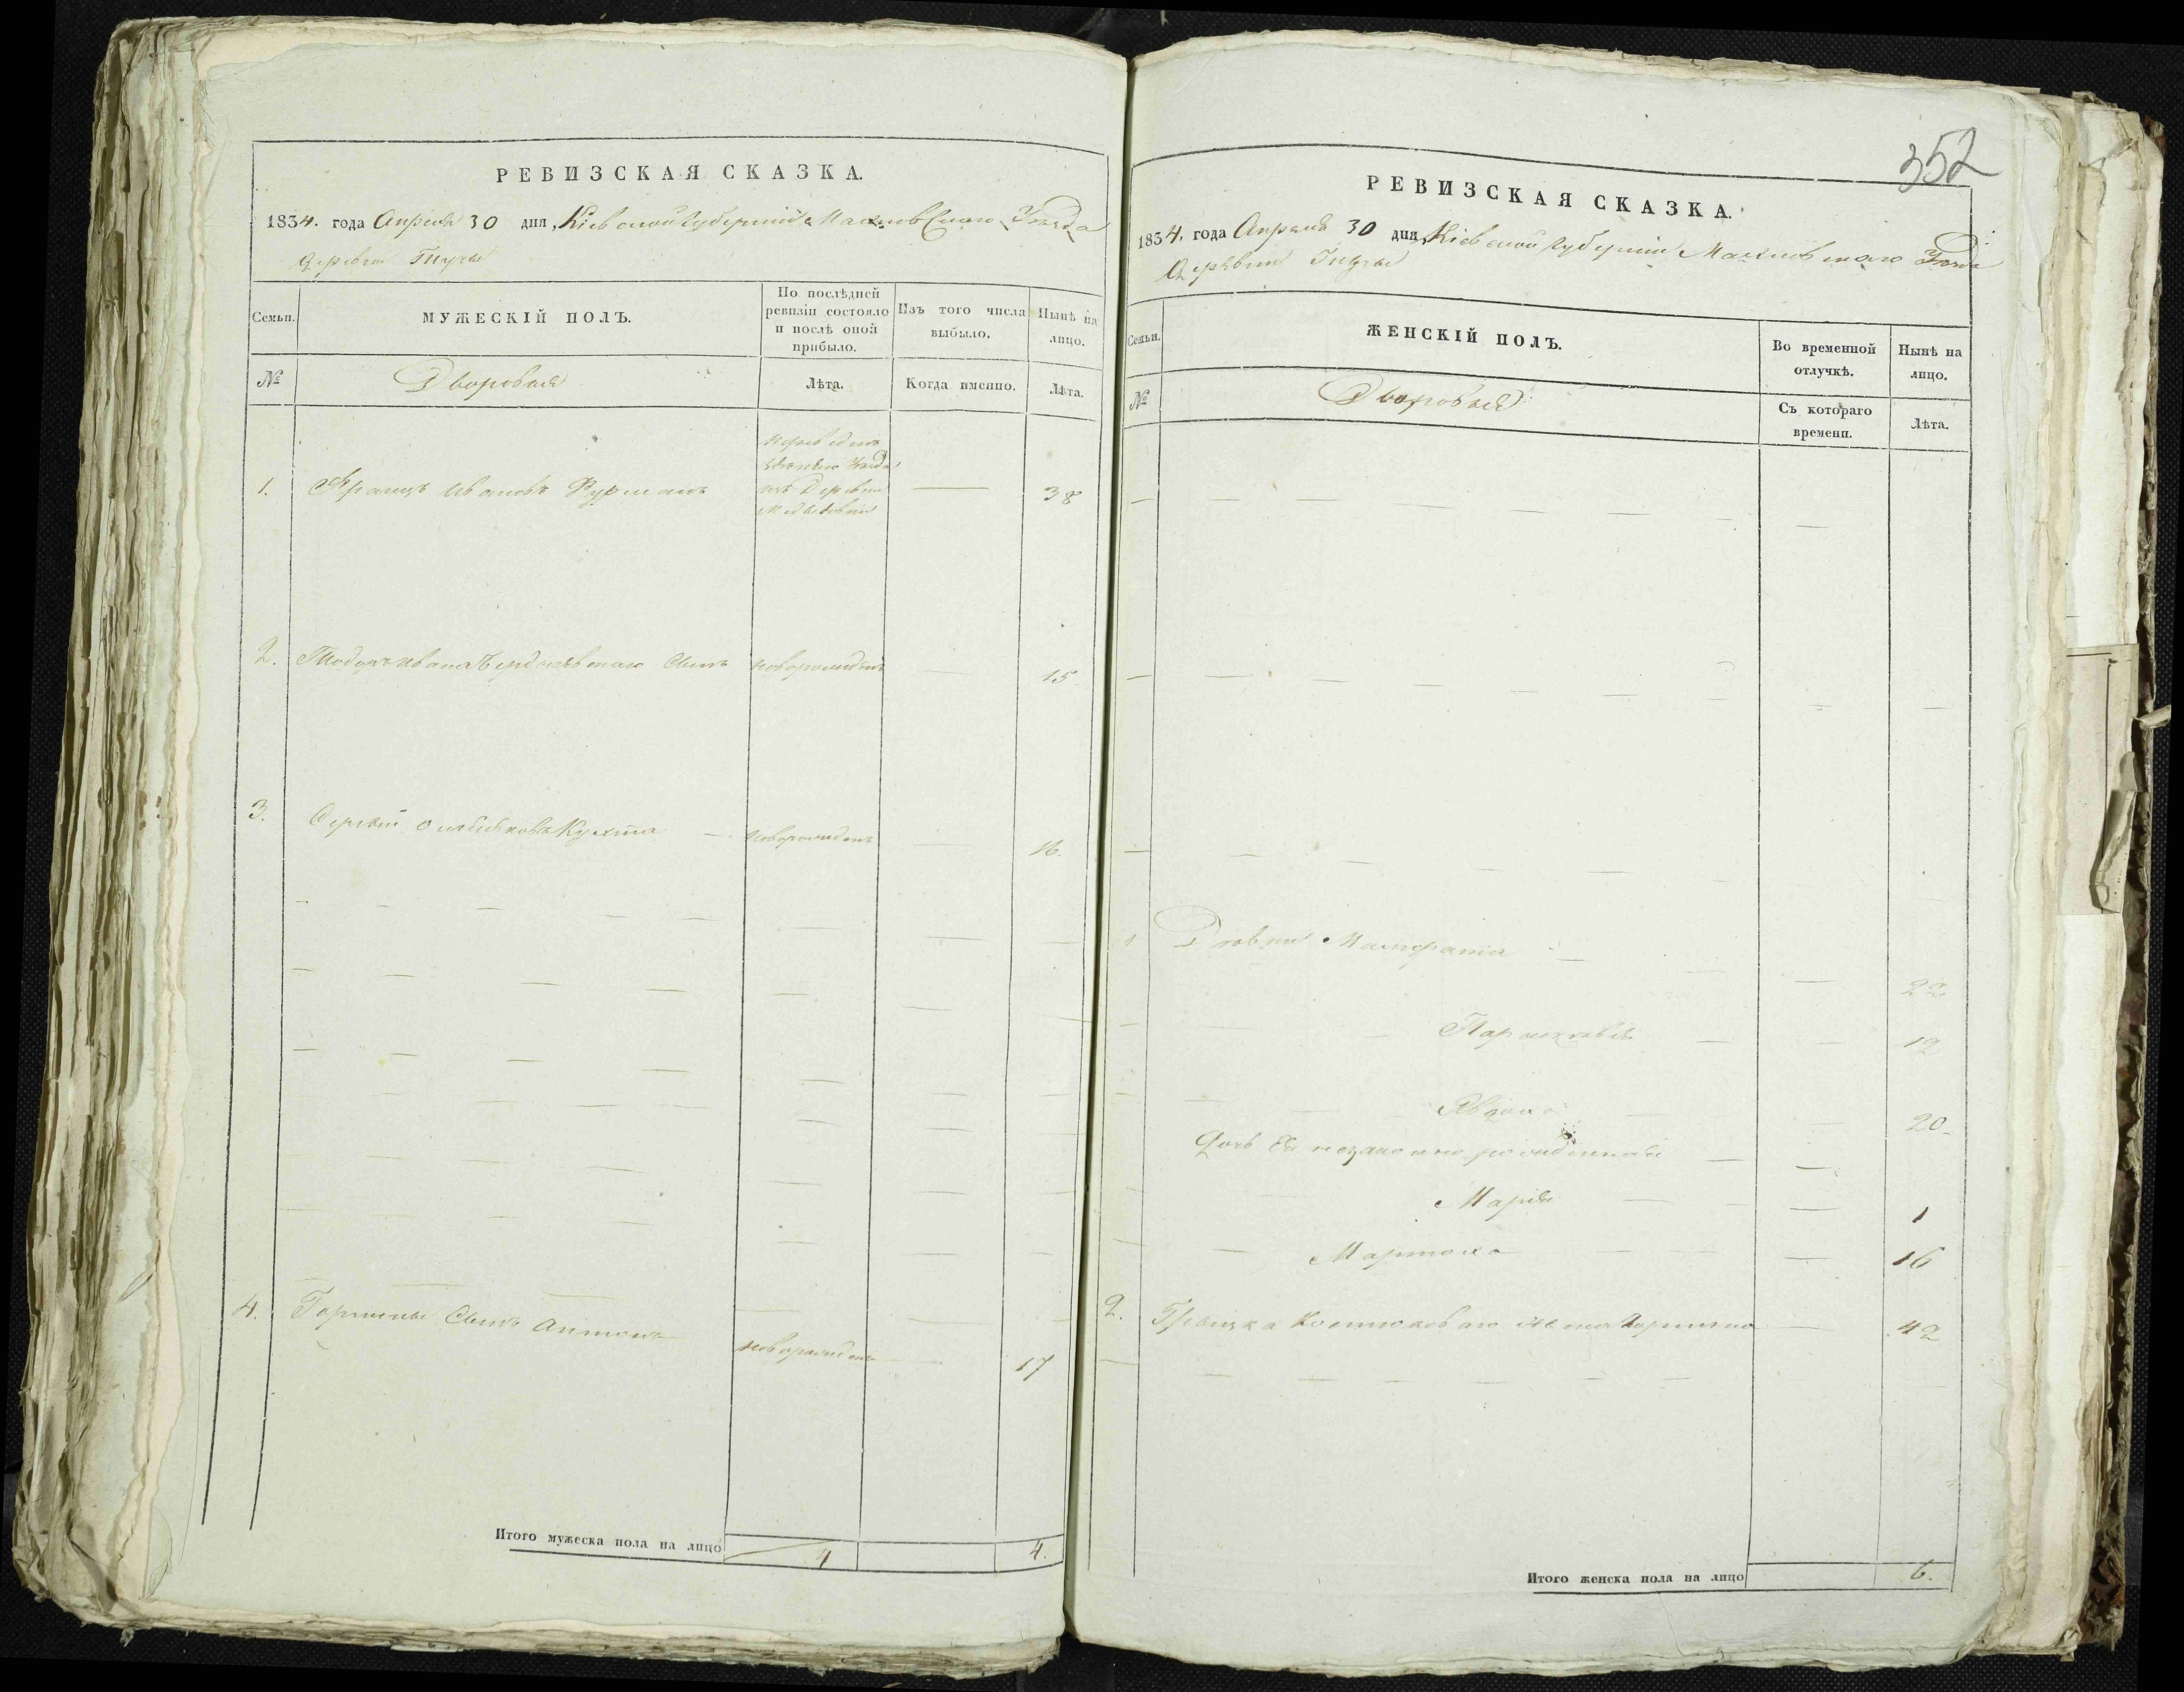 РЕВИЗСКАЯ СКАЗКА.
1834. года Апреля 30 дня, Кіевской Губерніи Уезда
Деревни
Семьи.
МУЖЕСКІЙ ПОЛЪ.
По послѣдней ревизіи состояло и послѣ оной прибыло.
Изъ того числа выбыло.
Нынѣ на лицо.
№
Дворовыя
Лѣта.
Когда именно.
Лѣта.
1. Францъ Ивановъ Фурманъ
переведенъ
изъ Деревни
38
2. Ивана сынъ новорожденъ 15
3. Сергѣй Кухта новорожденъ 16.
4. Горпины Сынъ Антонъ новорожденъ 17
Итого мужеска пола на лицо 4 4.
352
РЕВИЗСКАЯ СКАЗКА.
1834. года Апреля 30 дня, Кіевской Губерніи Уезда
Деревни
Семьи.
ЖЕНСКІЙ ПОЛЪ.
Во временной отлучкѣ.
Нынѣ на лицо.
№
Дворовыя
Съ котораго времени.
Лѣта.
1 Дѣвки 22
Парасковія 12
20
Дочь Ея незаконно рожденная
Марія 1
16
2. Грицка жена Горпина 42
Итого женска пола на лицо 6.